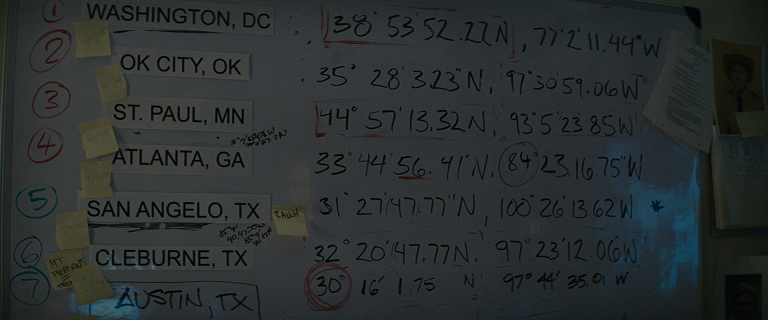 1 WASHINGTON, DC 38° 53' 52.22"N, 77° 2' 11.44"W
2 OK CITY, OK 35° 28' 3.23"N, 97° 30' 59.06W
3 ST. PAUL, MN 44° 57' 13.32N, 93° 5' 23 85W
4 ATLANTA, GA 33° 44' 56. 41"N, 84° 23' 16.75"W
5 SAN ANGELO, TX 31° 27' 47.77"N, 100° 26' 13.62W *
6 CLEBURNE, TX 32° 20' 47.77N, 97° 23' 12.06W
7 AUSTIN, TX 30° 16' 1.75 N 97° 44' 35.01 W